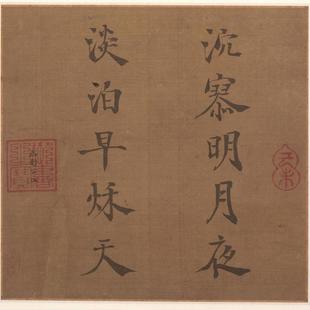 泬寥明月夜
淡泊早秋天